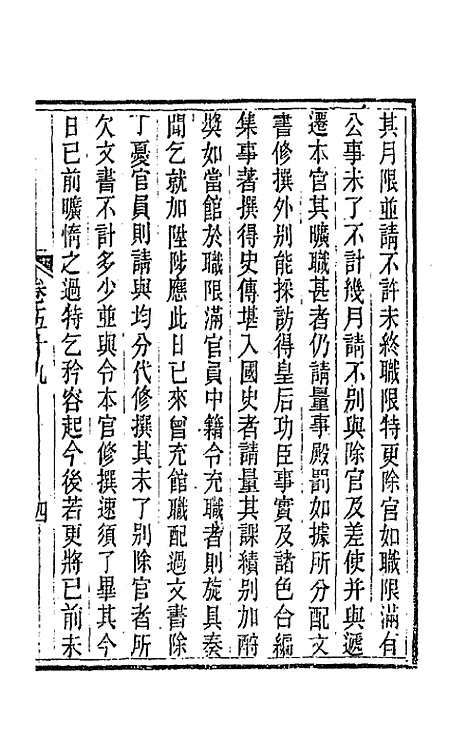 其月限並請不許未終職限特更除官如職限滿有
公事未了不計幾月請不別與除官及差使并與遞
遷本官其曠職甚者仍請量事殿罰如據所分配文
書修撰外别能採訪得皇后功臣事實及諸色合編
集事著撰得史傳堪入國史者請量其課績别加酧
奬如當館於職限滿官員中籍令充職者則旋具奏
聞乞就加陞陟應此日已來曾充館職配過文書除
丁憂官員則請與均分代修撰其未了别除官者所
欠文書不計多少並與令本官修撰速須了畢其今
日已前曠惰之過特乞矜容起今後若更將已前未
卷五十九
四